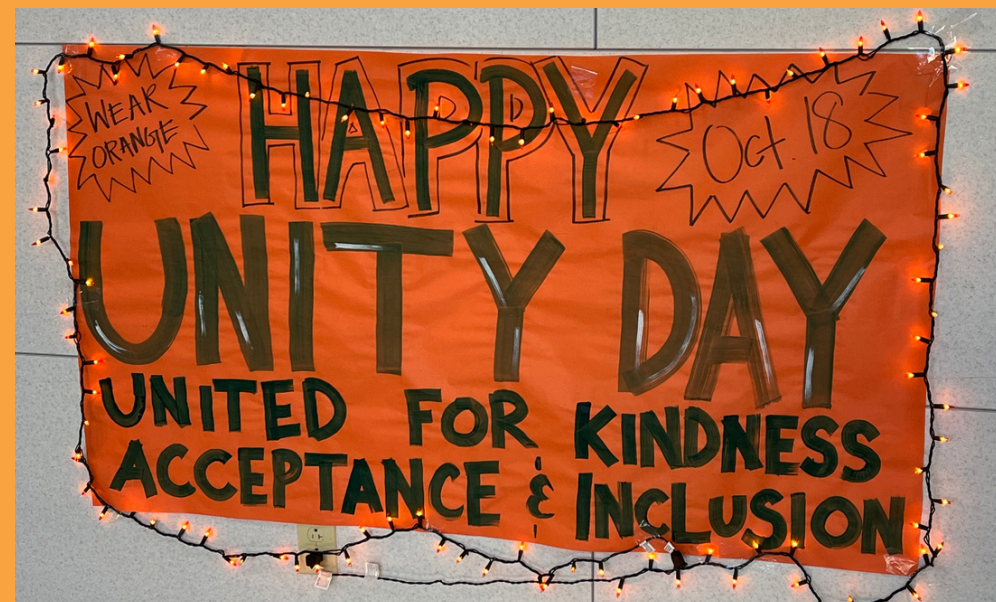 WEAR
ORANGE
HAPPY
Oct. 18
UNITY DAY
UNITED FOR KINDNESS
ACCEPTANCE & INCLUSION